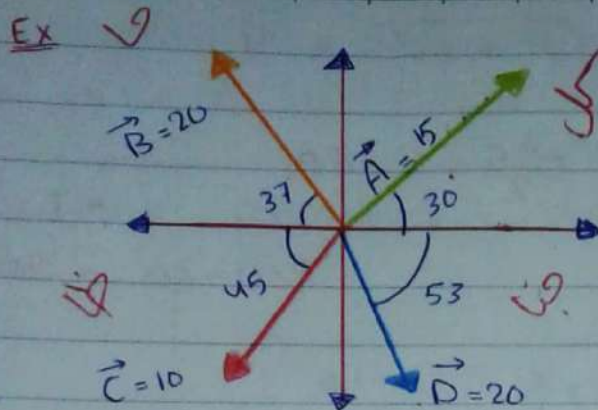 Ex
B = 20
A = 15
37
30
45
53
C = 10
D = 20